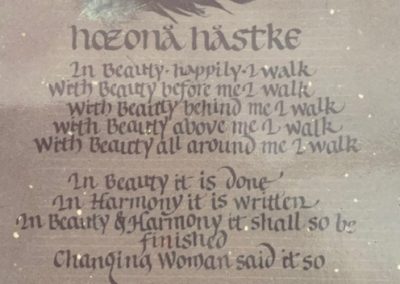 hozonå håstke
In Beauty·happily·I walk
With Beauty before me I walk
With Beauty behind me I walk
With Beauty above me I walk
With Beauty all around me I walk
In Beauty it is done
In Harmony it is written
In Beauty & Harmony it shall so be
finished
Changing Woman said it so